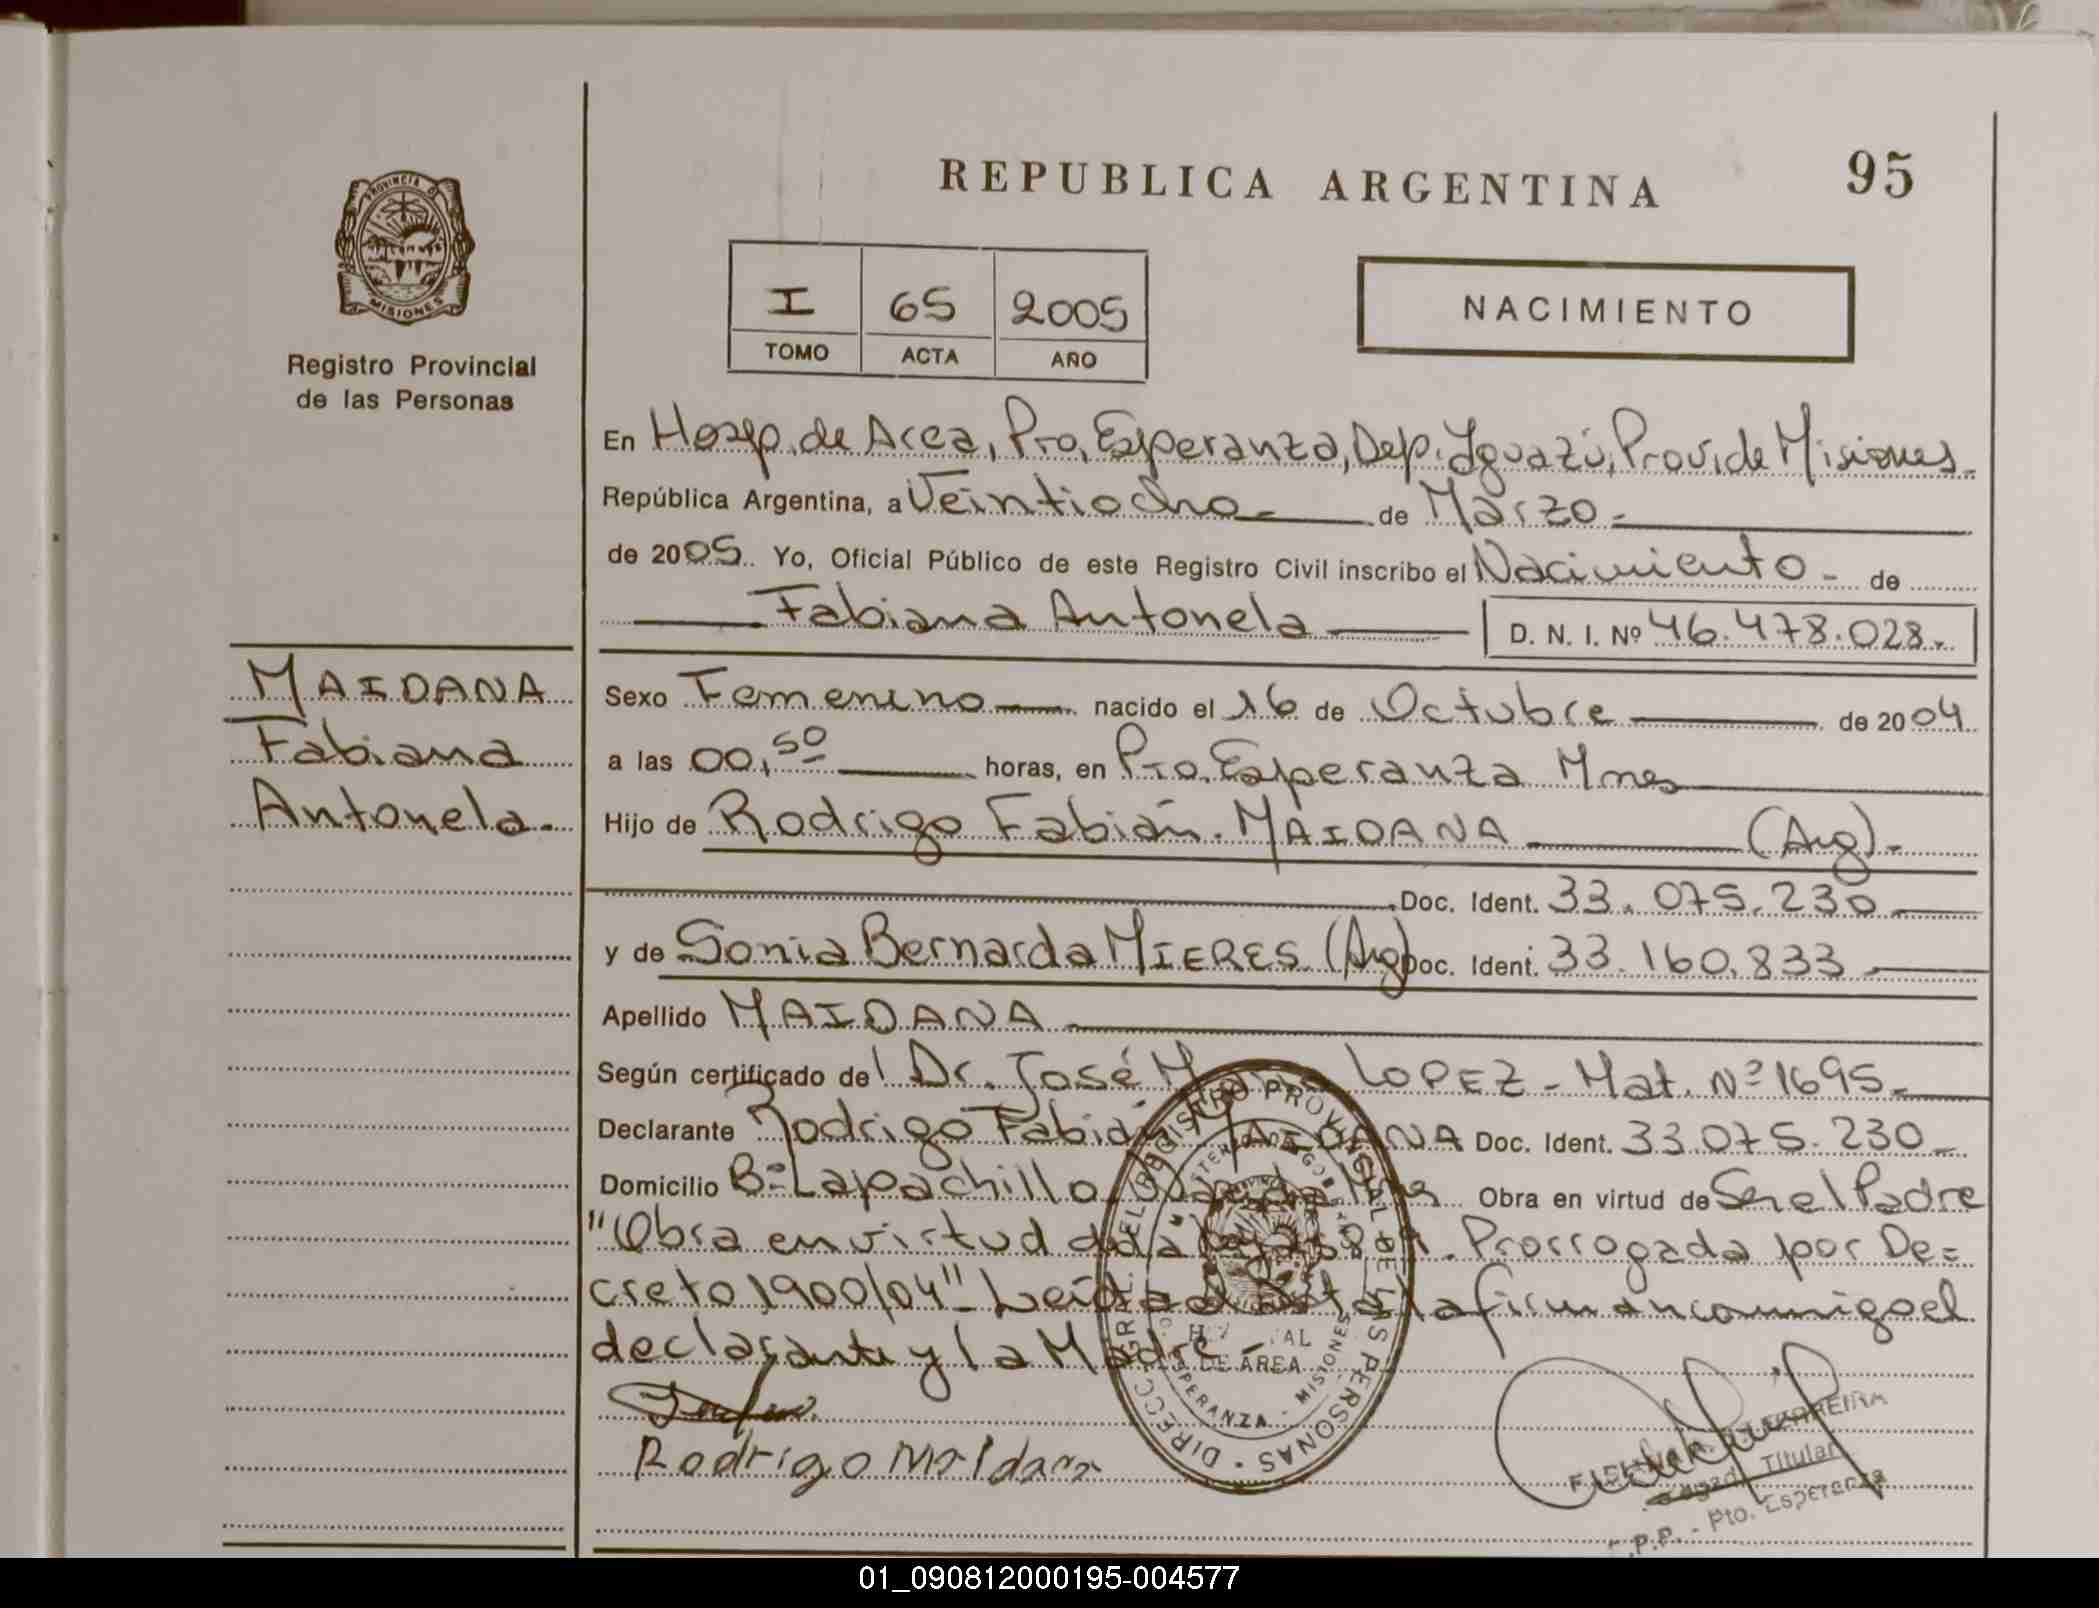 REPUBLICA ARGENTINA
95
PROVINCIA DE
MISIONES
Registro Provincial
de las Personas
I 65 2005
TOMO ACTA AÑO
NACIMIENTO
En Hosp. de Area, Pto, Esperanza, Dep. Iguazú, Prov. de Misiones.
República Argentina, a Veintiocho de Marzo
de 2005. Yo, Oficial Público de este Registro Civil inscribo el Nacimiento de
Fabiana Antonela D. N. I. Nº 46.478.028.
MAIDANA
Fabiana
Antonela.
Sexo Femenino nacido el 16 de Octubre de 2004
a las 00,50 horas, en Pto. Esperanza Mnes
Hijo de Rodrigo Fabián. MAIDANA (Arg).
Doc. Ident. 33.075.230
y de Sonia Bernarda MIERES (Arg) Doc. Ident. 33.160.833
Apellido MAIDANA
Según certificado del Dr. José LOPEZ - Mat. Nº 1695
Declarante Rodrigo Fabián MAIDANA Doc. Ident. 33.075.230
Domicilio Bº Lapachillo, Obra en virtud de Ser el Padre
"Obra en virtud de la Prorrogada por De=
creto 1900/04" Leída el Acta la firman conmigo el
declarante y la Madre
Rodrigo Maidana
DIRECC. GRAL. DEL REGISTRO PROVINCIAL DE LAS PERSONAS
DE AREA
ESPERANZA - MISIONES
FERREIRA
Titular
Pto. Esperanza
01_090812000195-004577